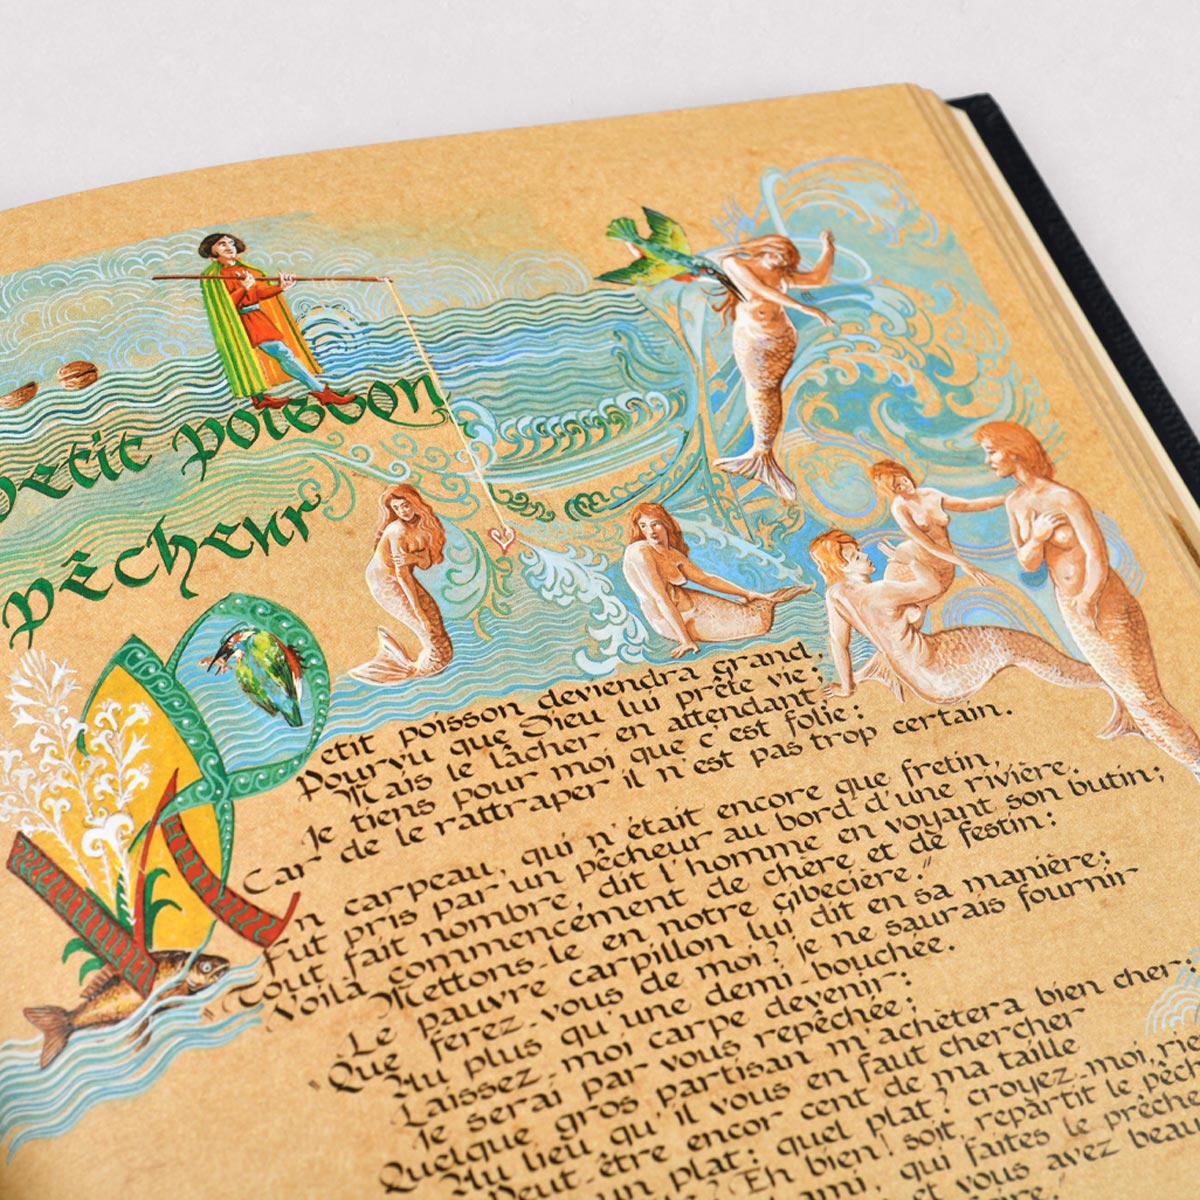 petit poisson
pêcheur
Petit poisson deviendra grand,
Pourvu que Dieu lui prête vie;
Mais le lâcher en attendant,
Je tiens pour moi que c'est folie:
Car de le rattraper il n'est pas trop certain.
Un carpeau, qui n'était encore que fretin,
Fut pris par un pêcheur au bord d'une rivière.
Tout fait nombre, dit l'homme en voyant son butin;
Voilà commencement de chère et de festin:
Mettons-le en notre gibecière."
Le pauvre carpillon lui dit en sa manière:
"Que ferez-vous de moi? je ne saurais fournir
Au plus qu'une demi-bouchée.
Laissez-moi carpe devenir:
Je serai par vous repêchée;
Quelque gros partisan m'achètera bien cher:
Au lieu qu'il vous en faut chercher
Peut-être encor cent de ma taille
un plat: quel plat? croyez-moi, rie
? Eh bien! soit, repartit le pêch
ami, qui faites le prêche
et vous avez beau